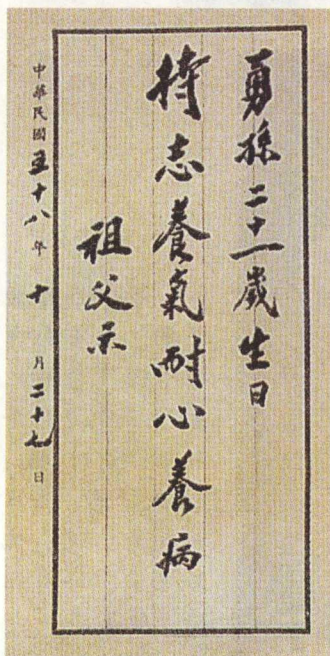 勇孫二十一歲生日
持志養氣耐心養病
祖父示
中華民國五十八年十月二十七日